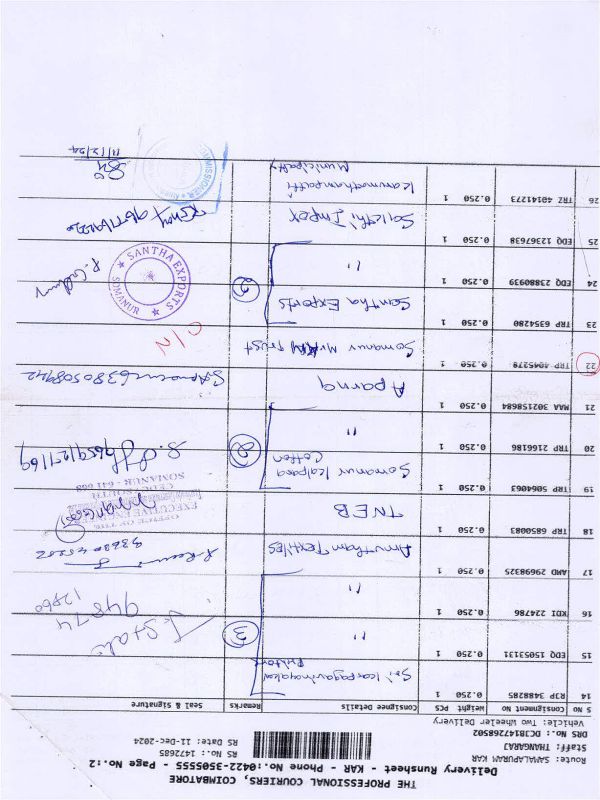 THE PROFESSIONAL COURIERS, COIMBATORE
Delivery Runsheet - KAR - Phone No.:0422-3505555 - Page No.:2
Route: SAMALAPURAM KAR
Staff: THANGARAJ
RS No.: 1472685
DRS No.: DCJB147268502
RS Date: 11-Dec-2024
Vehicle: Two Wheeler Delivery
S NO Consignment No Weight PCS Consignee Details Remarks Seal & Signature
14 RJP 3488285 0.250 1 Sri Karpagavinayaka Printers
15 EDQ 15053131 0.250 1 " 3
16 KDI 224786 0.250 1 " 94874 12860
17 AMD 29698325 0.250 1 Amutham Textiles
18 TRP 6850083 0.250 1 TNEB
OFFICE OF THE
EXECUTIVE ENGINEER
CEDC SOUTH
SOMANUR - 641 668
19 TRP 5064063 0.250 1 Somanur Kalpana Cotten
20 TRP 2166186 0.250 1 " 2
21 MAA 302158684 0.250 1 Aparna 6380508942
22 TRP 4045278 0.250 1 Somanur Trust C/N
23 TRP 6354280 0.250 1 Santha Exports
24 EDQ 23880939 0.250 1 " 2
SANTHA EXPORTS
SOMANUR
25 EDQ 12367638 0.250 1 Sakthi Impex
26 TRZ 40141273 0.250 1 Karumathampatti Municipality
COMMISSIONER
11/12/24